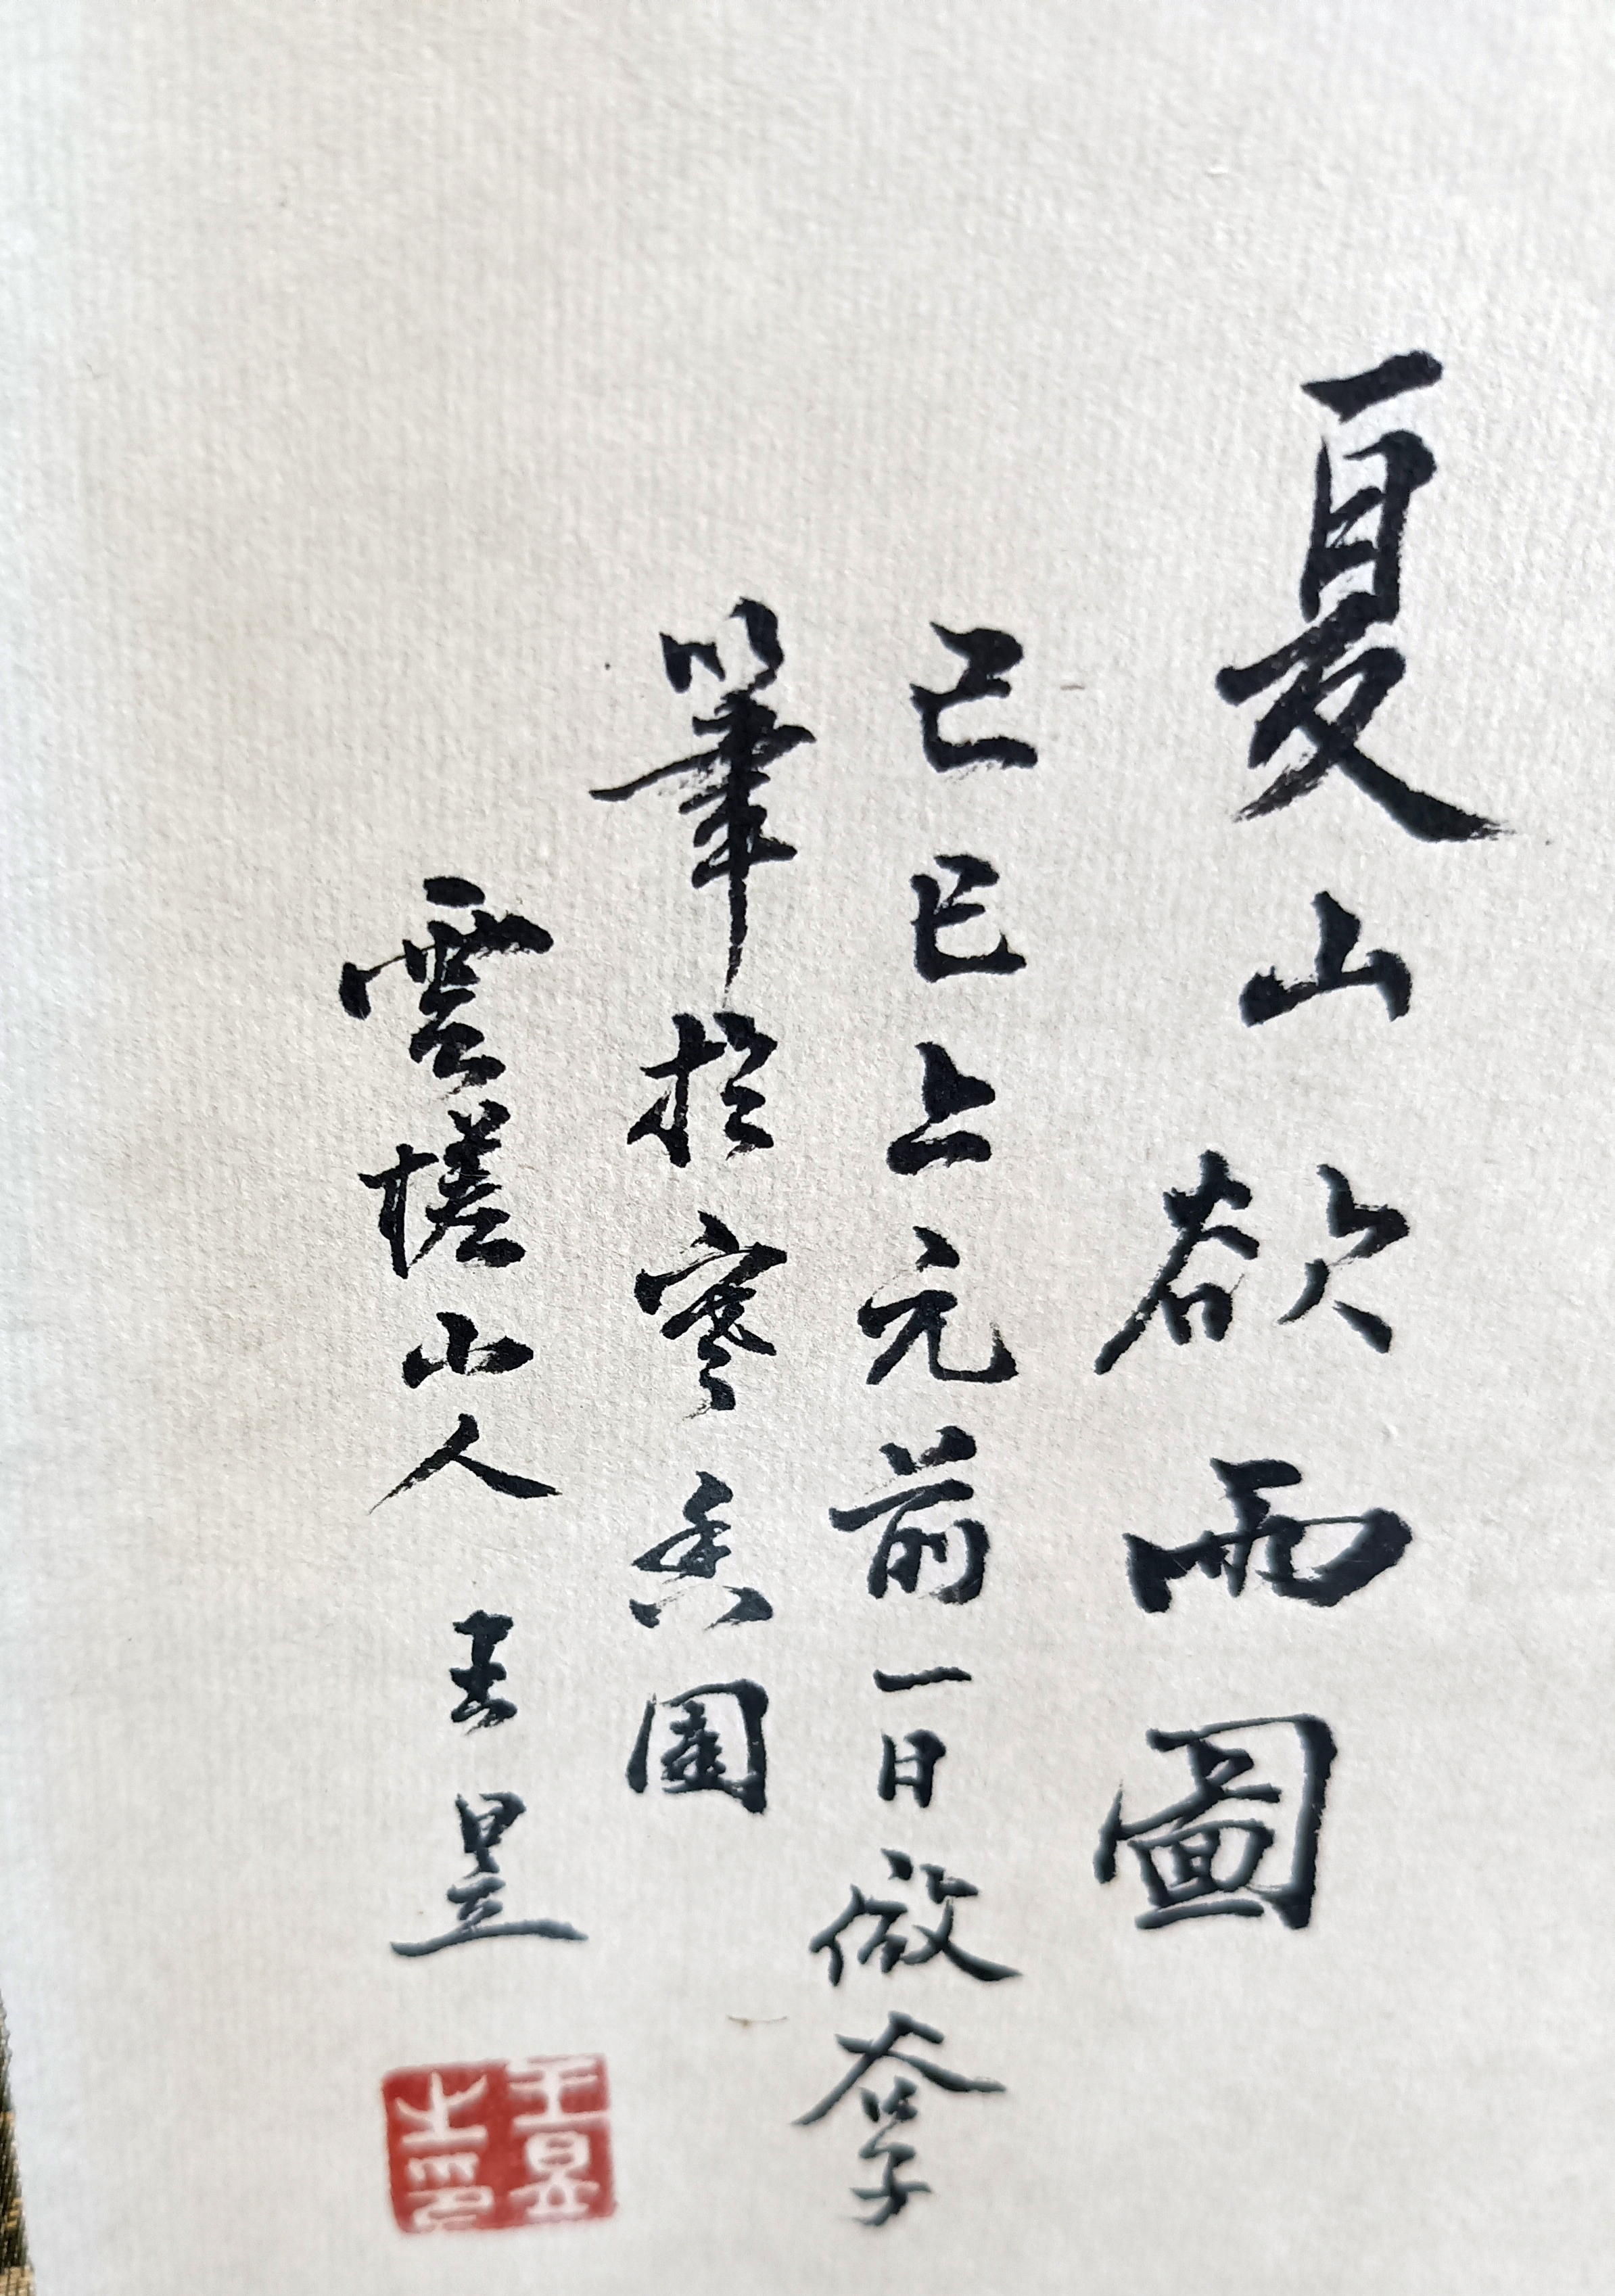 夏山欲雨圖
己巳上元前一日倣
筆於寒香園
雲槎山人 王昱
王昱之印